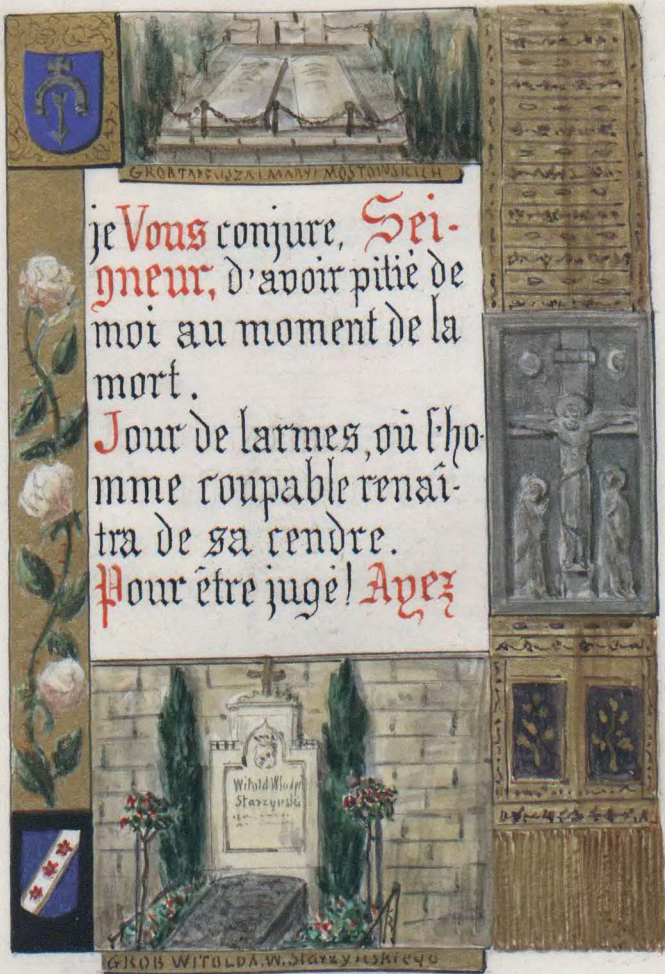 GROB TADEUSZA I MARYI MOSTOWSKICH
je Vous conjure, Sei-
gneur, d'avoir pitié de
moi au moment de la
mort.
Jour de larmes, où l'ho-
mme coupable renaî-
tra de sa cendre.
Pour être jugé! Ayez
Witold Włodz
Starzyński
GROB WITOLDA.W.Starzyńskiego